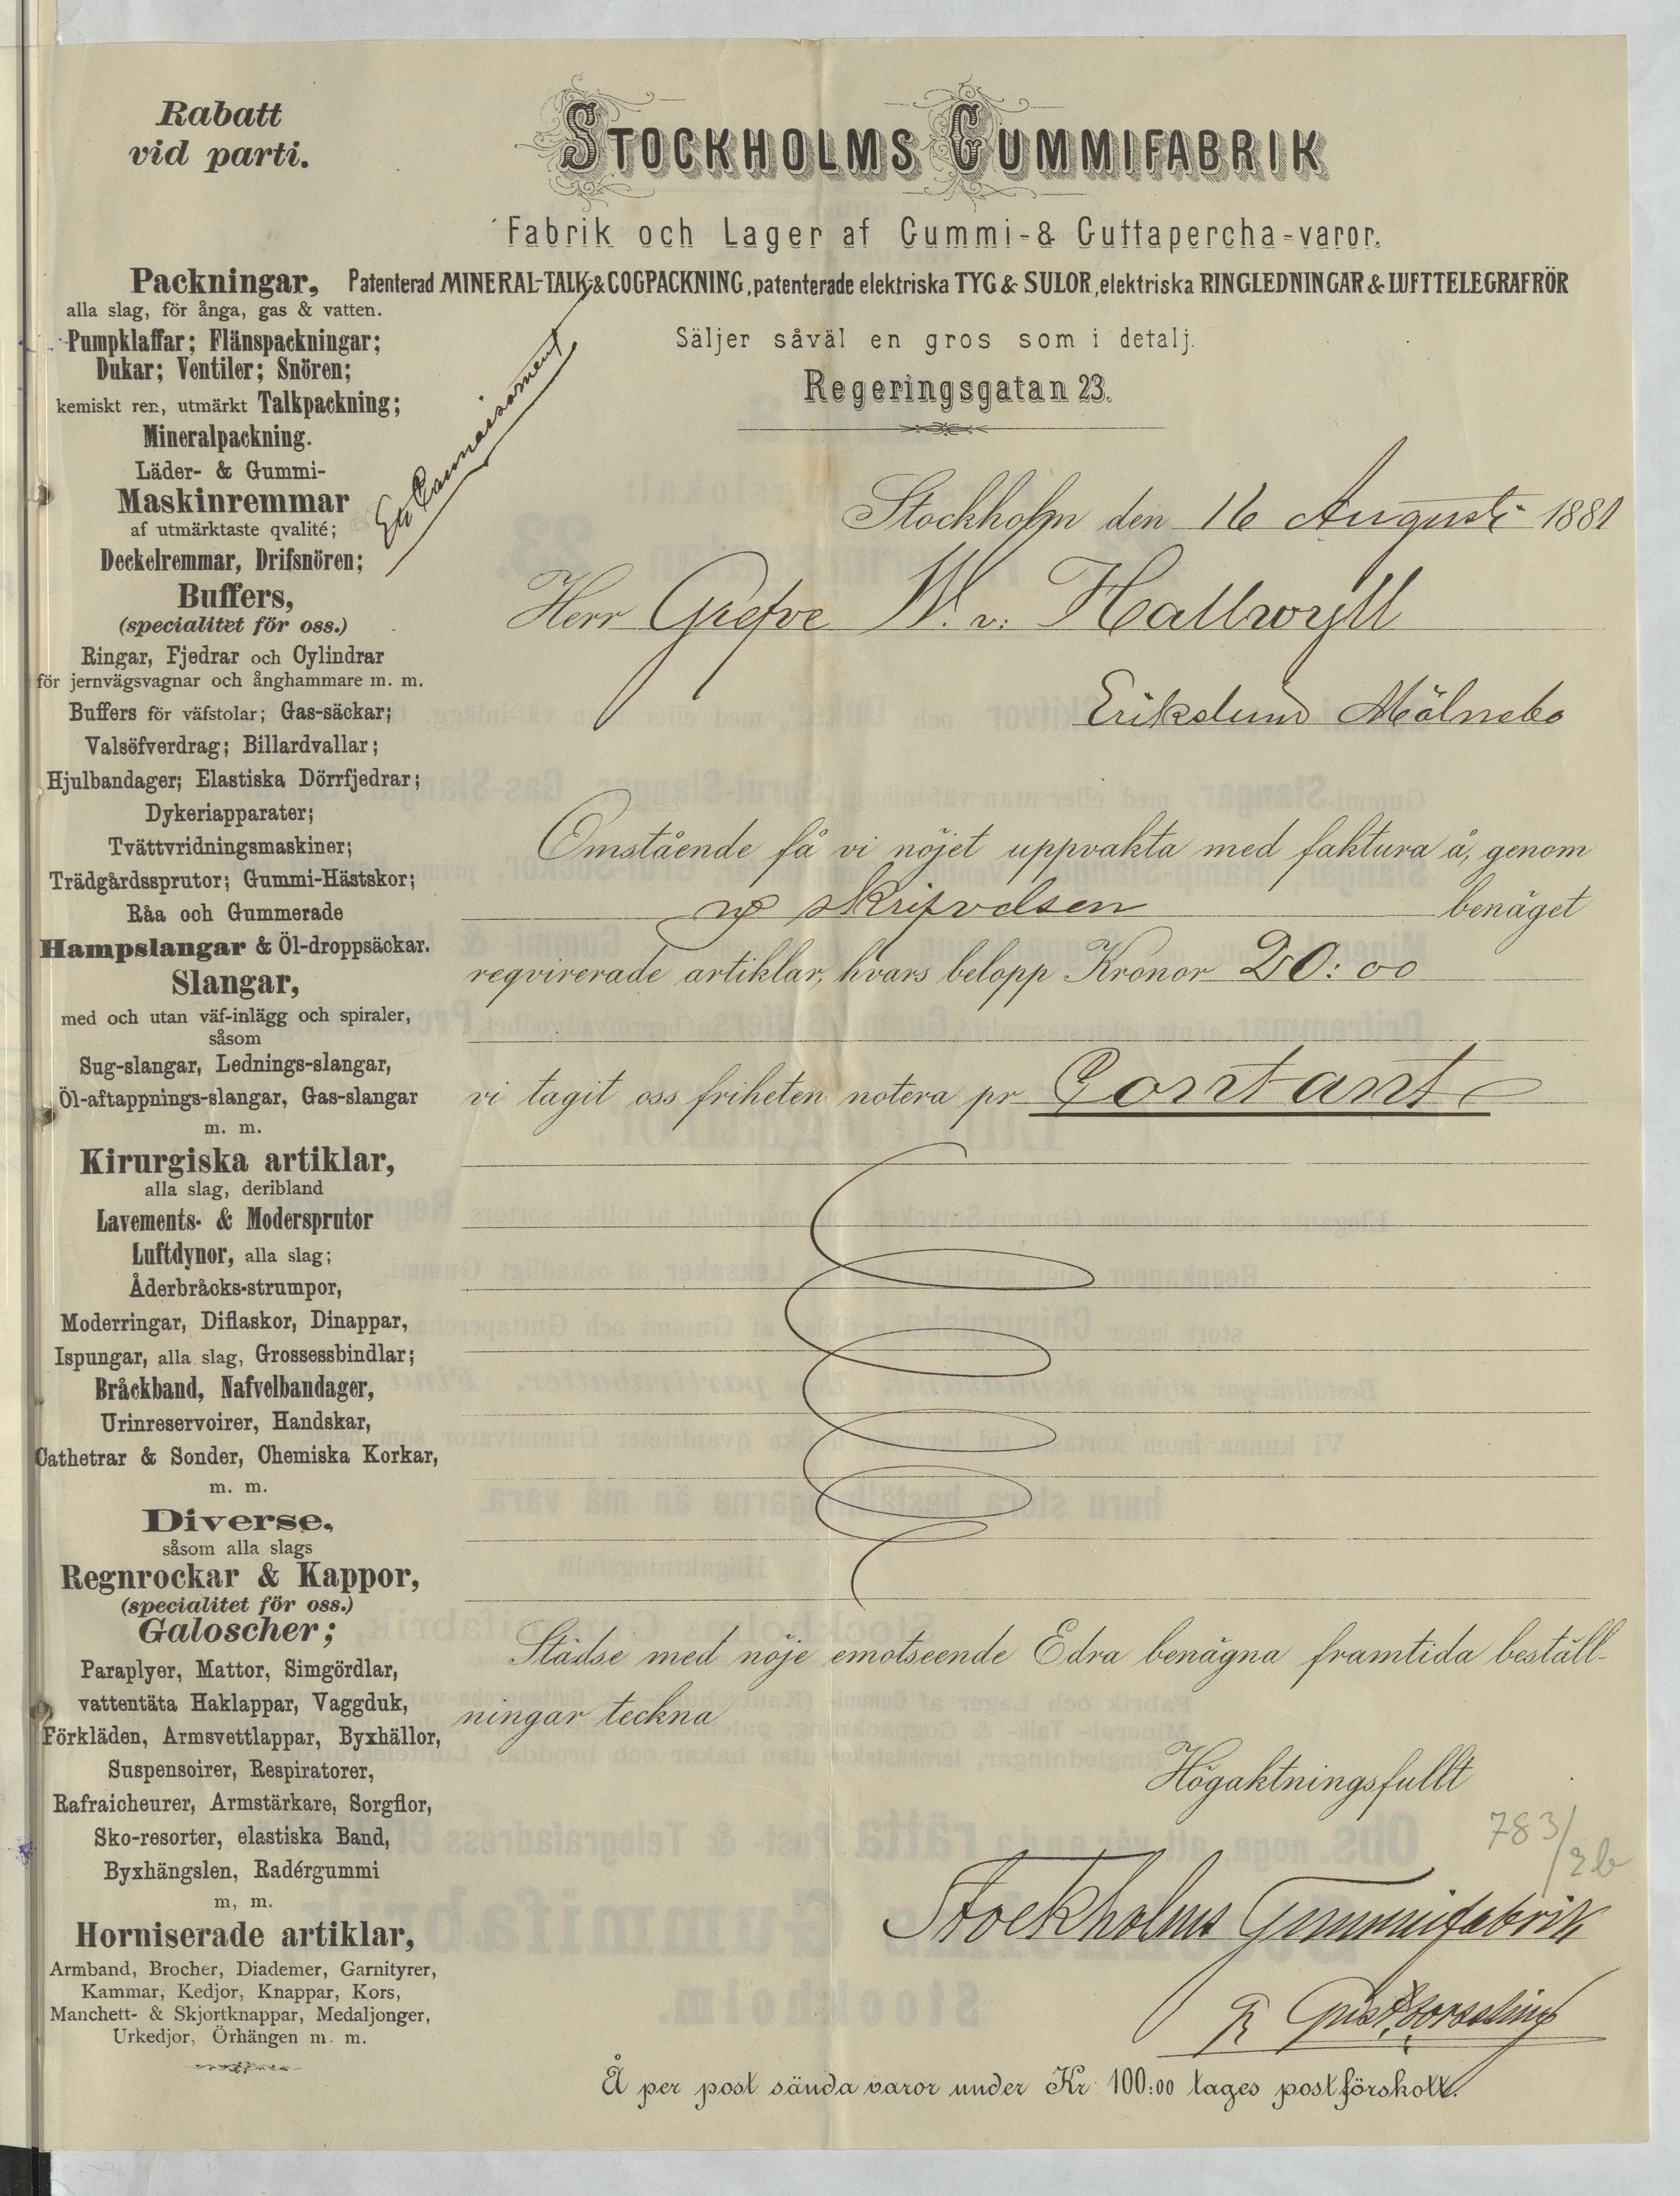 Rabatt
vid parti.
STOCKHOLMS GUMMIFABRIK
Fabrik och Lager af Gummi-& Guttapercha-varor.
Patenterad MINERAL-TALK-& COGPACKNING, patenterade elektriska TYG & SULOR, elektriska RINGLEDNINGAR & LUFTTELEGRAFRÖR
Säljer såväl en gros som i detalj.
Regeringsgatan 23.
Packningar,
alla slag, för ånga, gas & vatten.
Pumpklaffar; Flänspackningar;
Dukar; Ventiler; Snören;
kemiskt ren, utmärkt Talkpackning;
Mineralpackning.
Läder- & Gummi-
Maskinremmar
af utmärktaste qvalité;
Deckelremmar, Drifsnören;
Buffers,
(specialitet för oss.)
Ringar, Fjedrar och Cylindrar
för jernvägsvagnar och ånghammare m. m.
Buffers för väfstolar; Gas-säckar;
Valsöfverdrag; Billardvallar;
Hjulbandager; Elastiska Dörrfjedrar;
Dykeriapparater;
Tvättvridningsmaskiner;
Trädgårdssprutor; Gummi-Hästskor;
Råa och Gummerade
Hampslangar & Öl-droppsäckar.
Slangar,
med och utan väf-inlägg och spiraler,
såsom
Sug-slangar, Lednings-slangar,
Öl-aftappnings-slangar, Gas-slangar
m. m.
Kirurgiska artiklar,
alla slag, deribland
Lavements- & Modersprutor
Luftdynor, alla slag;
Åderbråcks-strumpor,
Moderringar, Diflaskor, Dinappar,
Ispungar, alla slag, Grossessbindlar;
Bråckband, Nafvelbandager,
Urinreservoirer, Handskar,
Cathetrar & Sonder, Chemiska Korkar,
m. m.
Diverse,
såsom alla slags
Regnrockar & Kappor,
(specialitet för oss.)
Galoscher;
Paraplyer, Mattor, Simgördlar,
vattentäta Haklappar, Vaggduk,
Förkläden, Armsvettlappar, Byxhällor,
Suspensoirer, Respiratorer,
Rafraicheurer, Armstärkare, Sorgflor,
Sko-resorter, elastiska Band,
Byxhängslen, Radérgummi
m, m.
Horniserade artiklar,
Armband, Brocher, Diademer, Garnityrer,
Kammar, Kedjor, Knappar, Kors,
Manchett- & Skjortknappar, Medaljonger,
Urkedjor, Örhängen m. m.
Stockholm den 16 Augusti 1881
Herr Grefve W. v. Hallwyll
Erikslund Mölnebo
Omstående få vi nöjet uppvakta med faktura å, genom
skrifvelsen benäget
reqvirerade artiklar, hvars belopp Kronor 20:00
vi tagit oss friheten notera pr Contant
Städse med nöje emotseende Edra benägna framtida beställ-
ningar teckna
Högaktningsfullt
783/2b
Stockholms Gummifabrik
Å per post sända varor under Kr 100:00 tages postförskott.